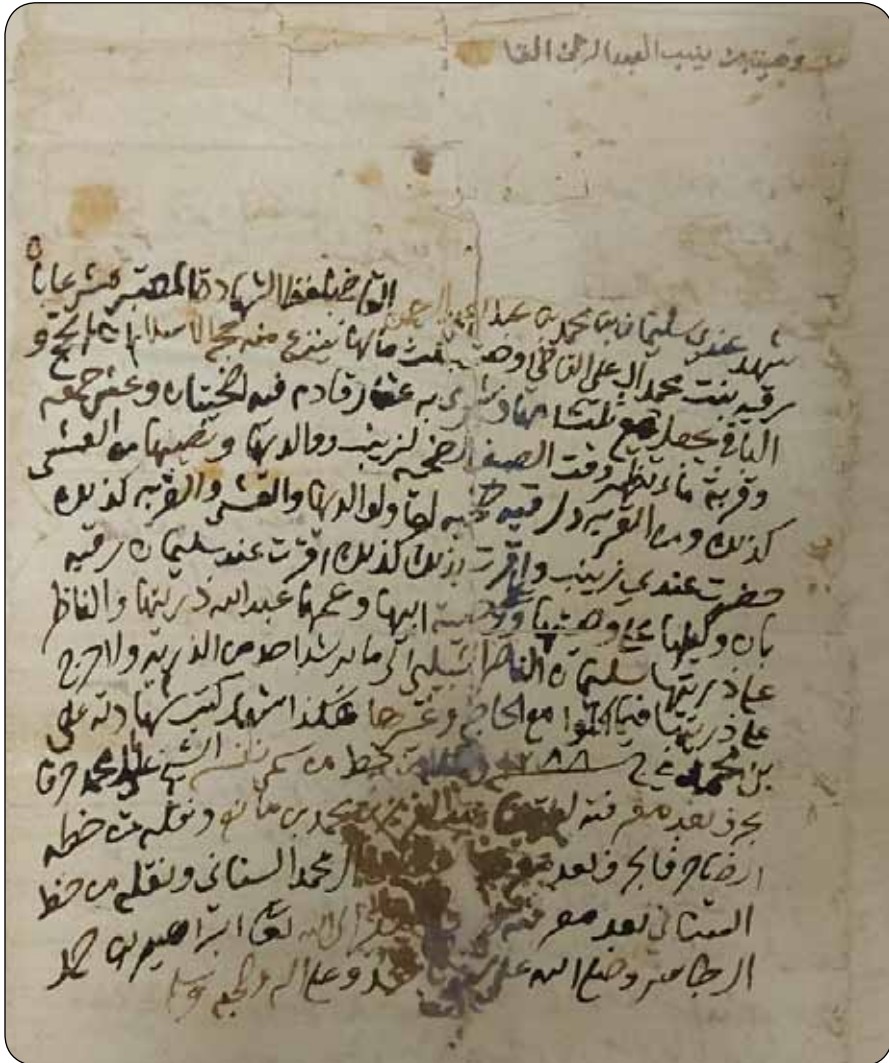 وصية بنت زينب العبد الرحمن القا
القاضي بلفظ الشهادة المعتبر شرعا بان
شهد عندي سليمان بن محمد بن عبد العزيز
رقيه بنت محمد آل علي القاضي اوصت بثلث مالها ينزع منه حجج الاسلام الحجج و
الباقي يجعل مع ثلث امها ويشرى به عقار قادم فيه اضحيتان وعشى جمعه
وقربة ماء تظهر وقت الصيف الضحيه لزينب ووالديها ونصيبها من العشى
كذلك ومن القربه ورقيه ضحيه لها ولوالديها والعشى والقربه كذلك
حضرت عندي زينب واقرت بذلك كذلك اقرت عند سليمان رقيه
بان وكيلها على وصيتها ووصية ابيها وعمها عبدالله ذريتها والناظر
على ذريتها سليمان الناصر الشبيلي الى ما يرشد احد من الذريه ولا حرج
على ذريتها فيما اكلوا مع الحاجه وغيرها هكذا كتب شهادته علي
بن محمد في ١٢٨٨ من خط من سمى نفسه الشيخ علي المحمد حرفا
بحرف بعد معرفته عبد العزيز بن محمد بن مانع ونقله من خطه
ايضا حرفا بحرف بعد معرفته المحمد السناني ونقله من خط
السناني بعد معرفته الى الله تعالى ابراهيم بن حمد
الجاسر وصلى الله على محمد وعلى اله وصحبه وسلم